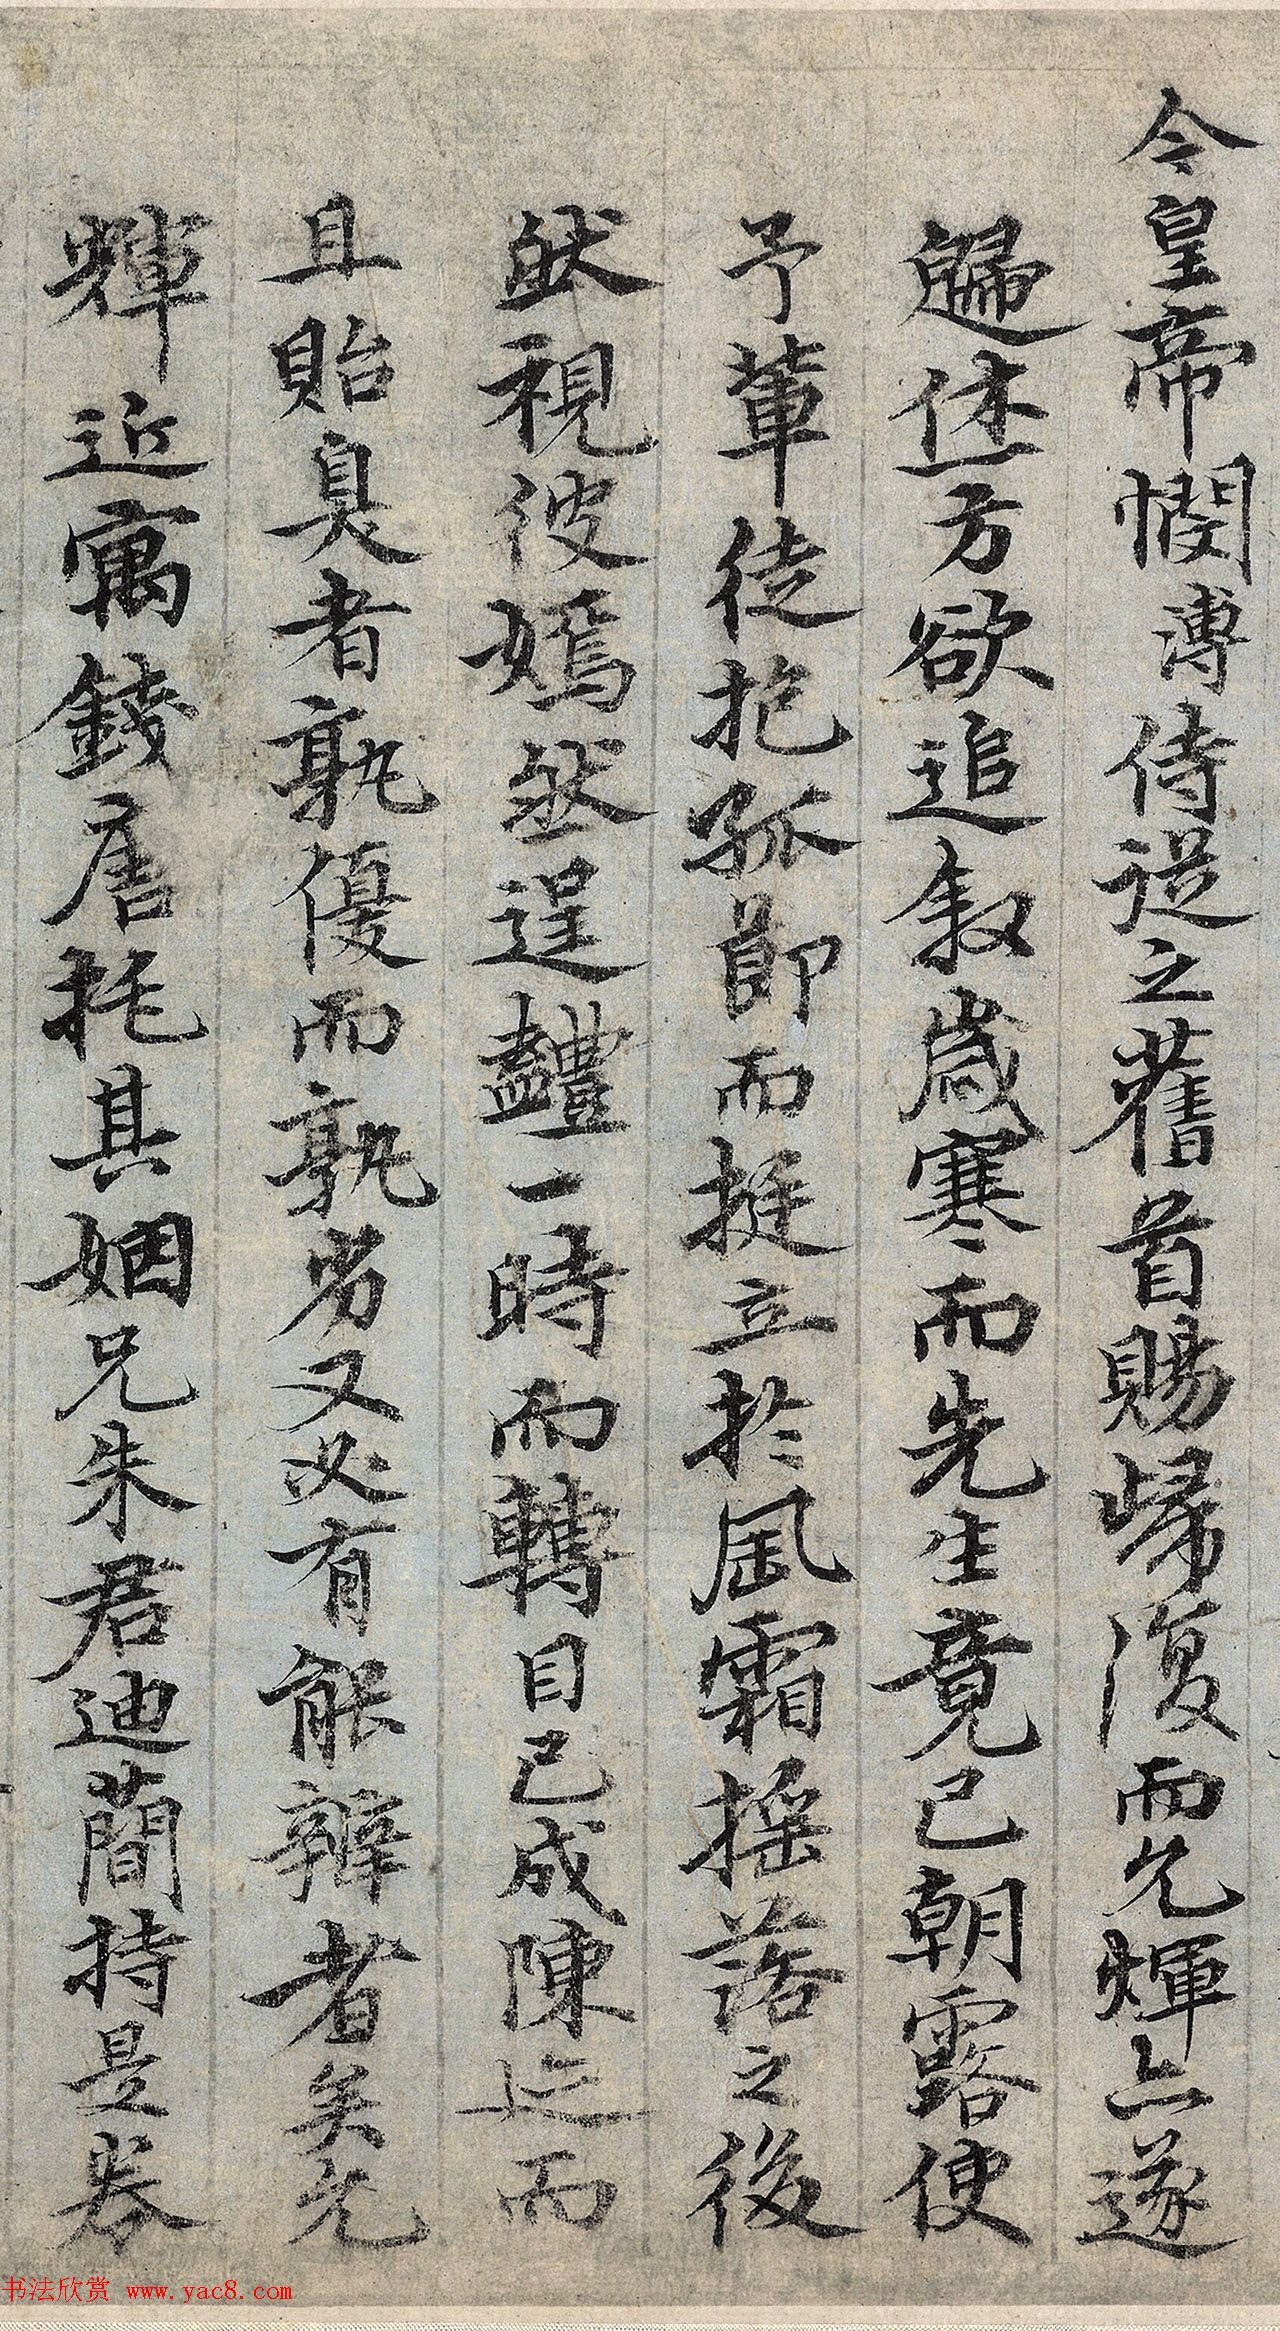 今皇帝憫溥侍從之舊首賜歸復而允輝亦遂
歸休方欲追叙歲寒而先生竟已朝露使
予輩徒抱孤節而挺立於風霜搖落之後
然視彼嫣然逞豔一時而轉目已成陳迹而
且貽臭者孰優而孰劣又必有能辯者矣允
輝近寓錢唐托其姻兄朱君迪簡持是卷
书法欣赏 www.yac8.com